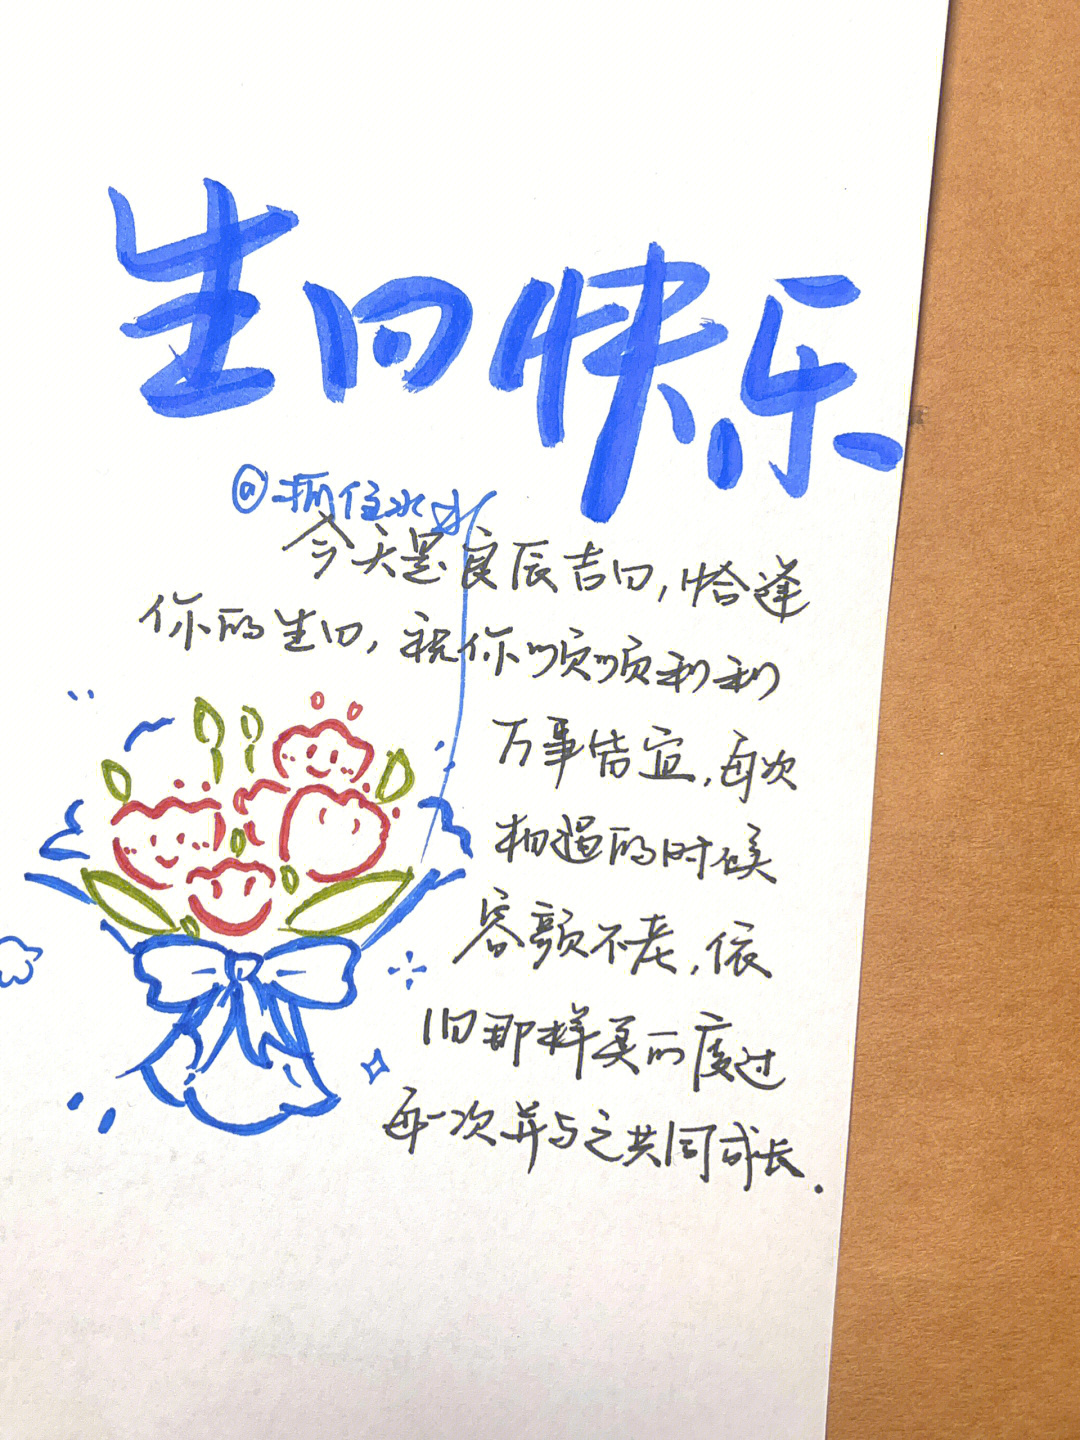 生日快乐
@抓住水水
今天是良辰吉日,恰逢
你的生日,祝你顺顺利利
万事皆宜,每次
相遇的时候
容颜不老,依
旧那样美而度过
每一次并与之共同成长.